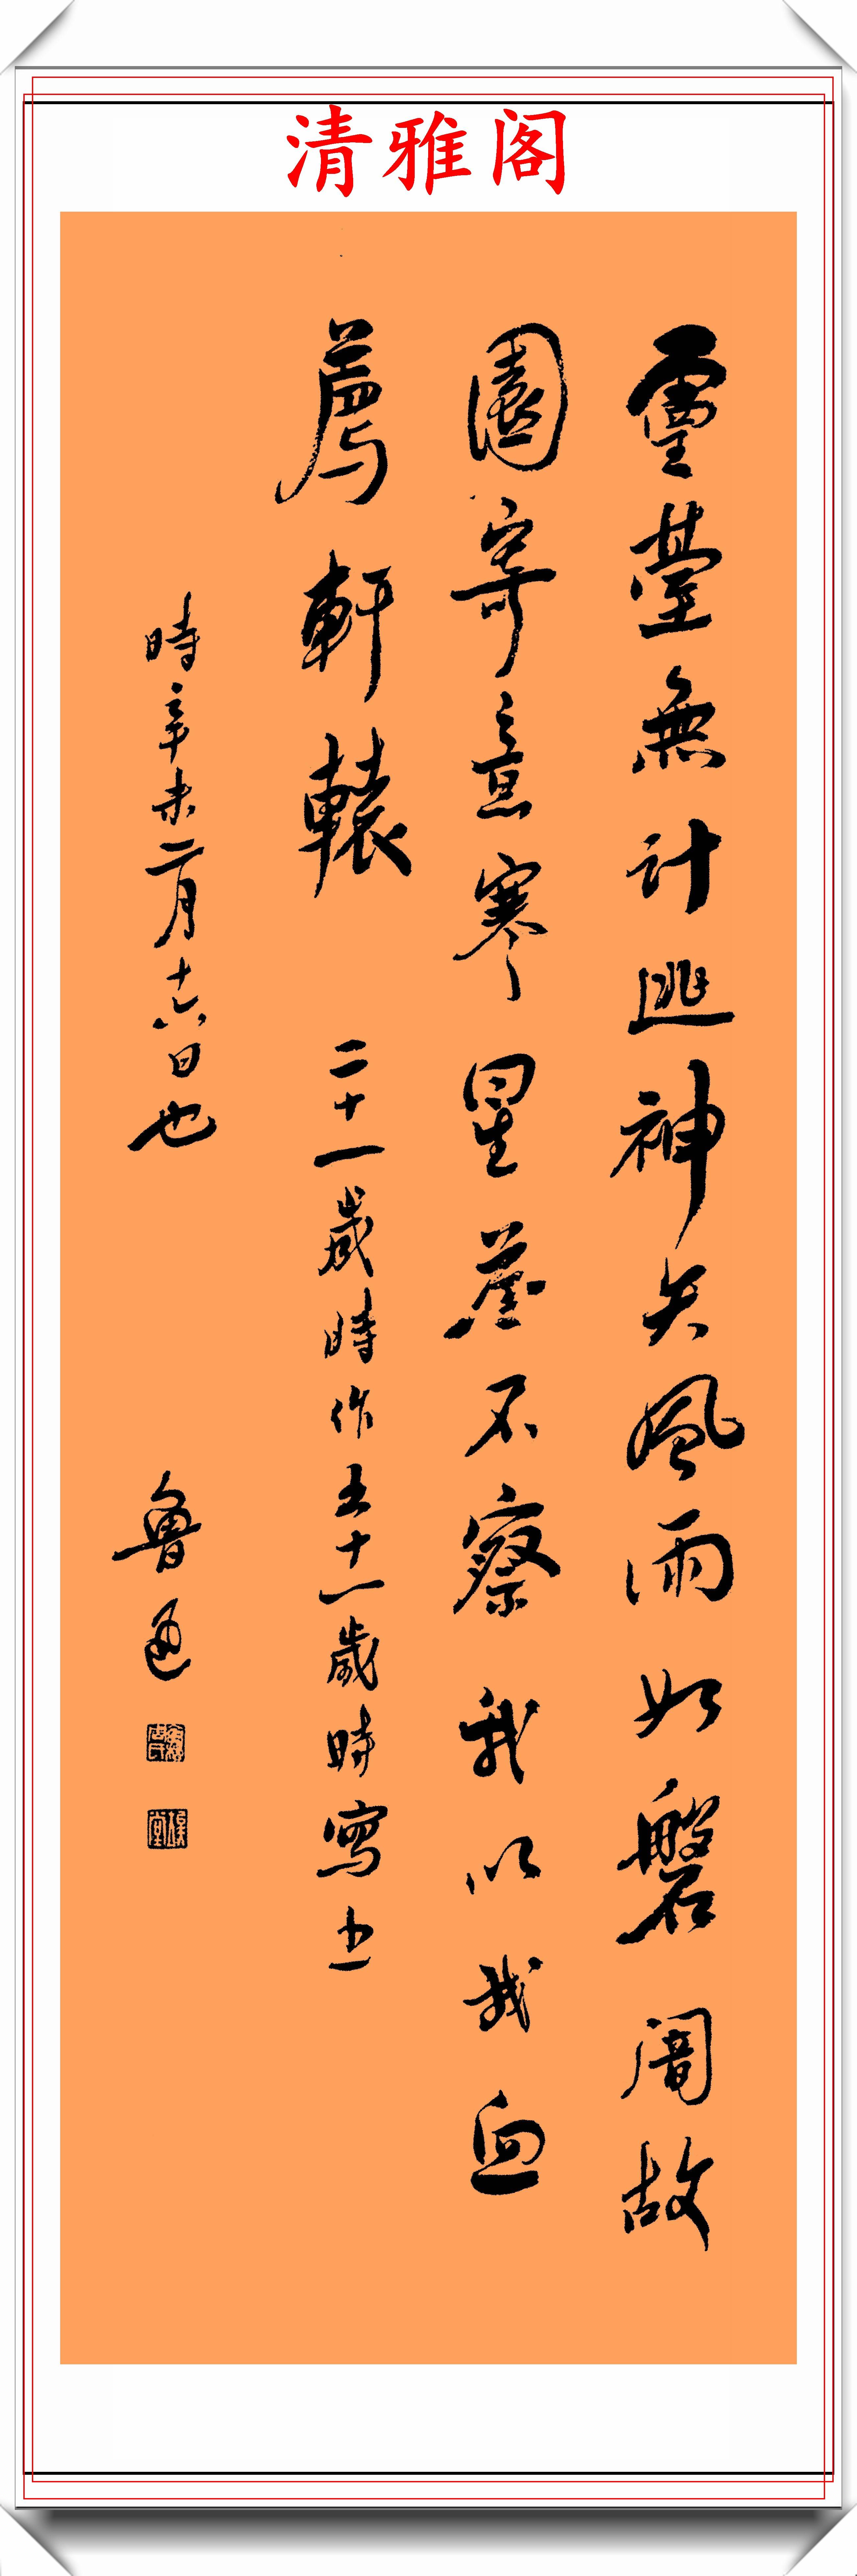 清雅阁
靈臺無計逃神矢風雨如磐闇故
園寄意寒星荃不察我以我血
薦軒轅 二十一歲時作五十一歲時寫之
時辛未二月十六日也
魯迅